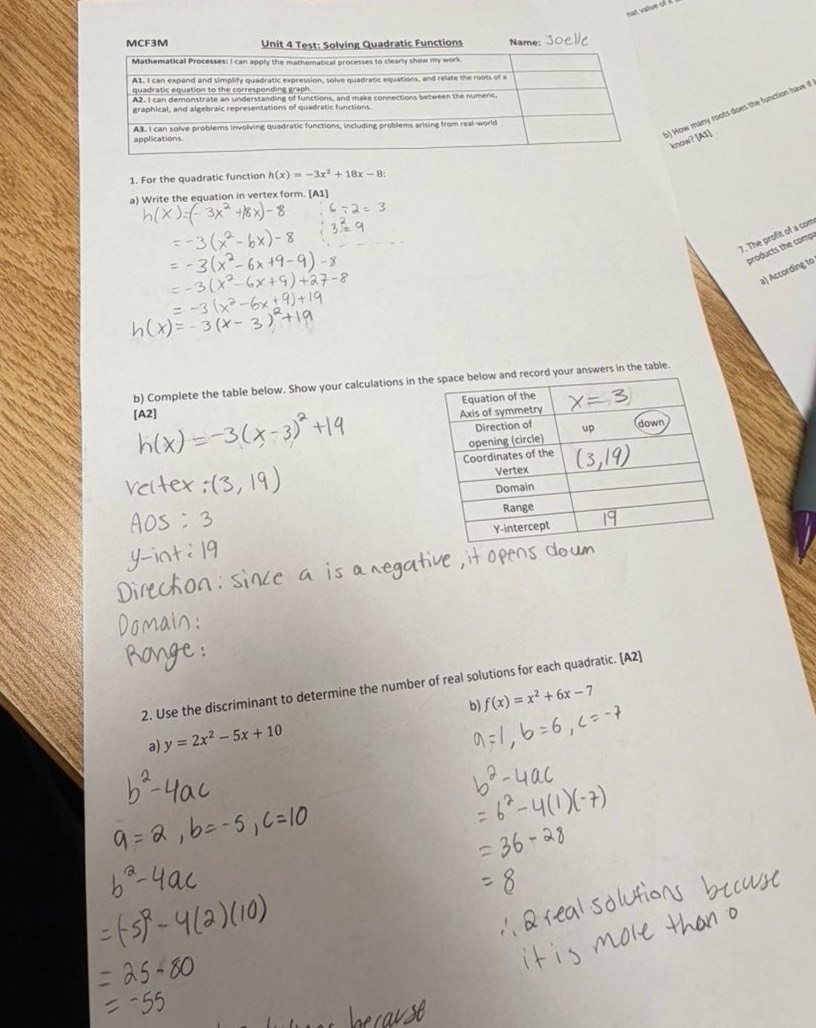 MCF3M Unit 4 Test: Solving Quadratic Functions Name: Joelle
Mathematical Processes: I can apply the mathematical processes to clearly show my work.
A1. I can expand and simplify quadratic expression, solve quadratic equations, and relate the roots of a
quadratic equation to the corresponding graph.
A2. I can demonstrate an understanding of functions, and make connections between the numeric,
graphical, and algebraic representations of quadratic functions.
A3. I can solve problems involving quadratic functions, including problems arising from real-world
applications.
1. For the quadratic function h(x) = −3x² + 18x − 8:
a) Write the equation in vertex form. [A1]
h(x)=(-3x²+18x)-8
6÷2=3
3²=9
=-3(x²-6x)-8
=-3(x²-6x+9-9)-8
=-3(x²-6x+9)+27-8
=-3(x²-6x+9)+19
h(x)=-3(x-3)²+19
b) Complete the table below. Show your calculations in the space below and record your answers in the table.
[A2]
h(x)=-3(x-3)²+19
vertex:(3,19)
AOS: 3
y-int: 19
Direction: since a is a negative, it opens down
Domain:
Range:
Equation of the
Axis of symmetry x=3
Direction of
opening (circle) up down
Coordinates of the
Vertex (3,19)
Domain
Range
Y-intercept 19
2. Use the discriminant to determine the number of real solutions for each quadratic. [A2]
a) y = 2x² − 5x + 10
b²-4ac
a=2, b=-5, c=10
b²-4ac
=(-5)²-4(2)(10)
=25-80
=-55
because
b) f(x) = x² + 6x − 7
a=1, b=6, c=-7
b²-4ac
=6²-4(1)(-7)
=36-28
=8
∴ 2 real solutions becuse
it is more than 0
b) How many roots does the function have
know? [A1]
7. The profit of a
products the
a) According to